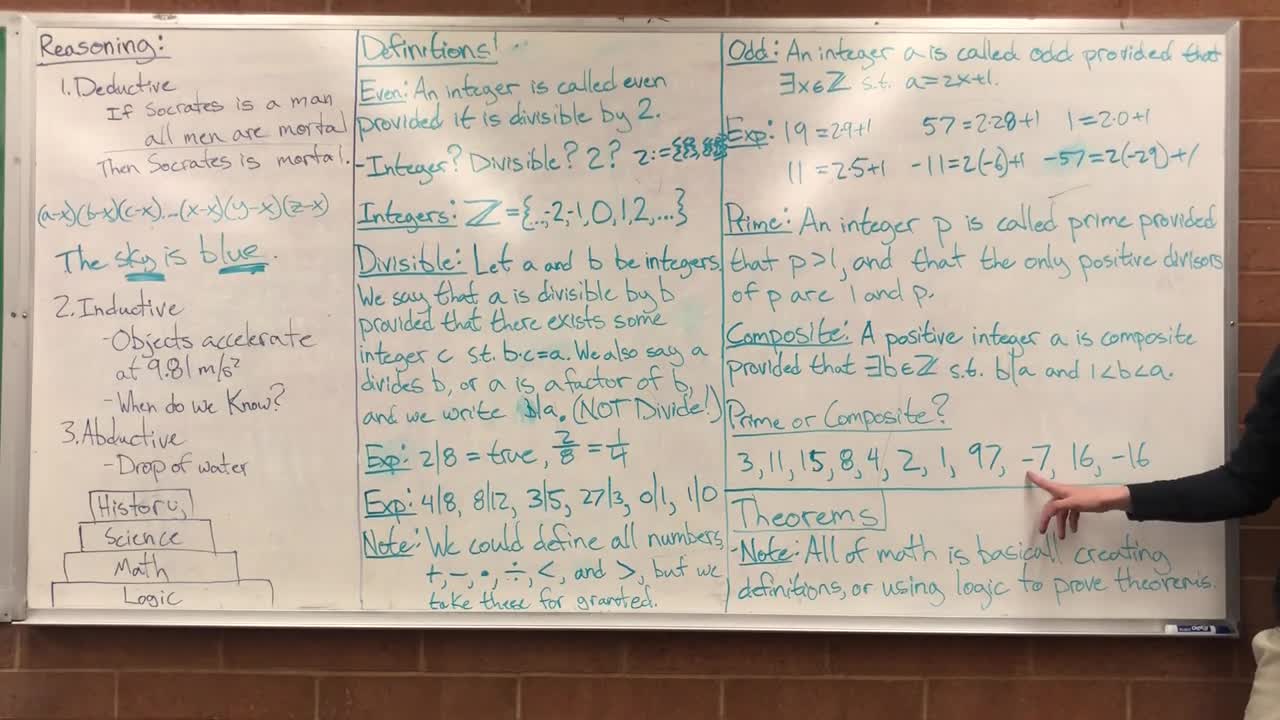 Reasoning:
1. Deductive
If Socrates is a man
all men are mortal
Then Socrates is mortal.
(a-x)(b-x)(c-x)....(x-x)(y-x)(z-x)
The sky is blue.
2. Inductive
-Objects accelerate
at 9.81 m/s²
-When do we know?
3. Abductive
-Drop of water
History
Science
Math
Logic
Definitions!
Even: An integer is called even
provided it is divisible by 2.
-Integer? Divisible? 2? 2:=
Integers: ℤ={...,-2,-1,0,1,2,...}
Divisible: Let a and b be integers.
We say that a is divisible by b
provided that there exists some
integer c st. b·c=a. We also say a
divides b, or a is a factor of b,
and we write b|a. (NOT Divide!)
Exp: 2|8 = true, 2/8 = 1/4
Exp: 4|8, 8|12, 3|5, 27|3, 0|1, 1|0
Note: We could define all numbers,
+, -, ·, ÷, <, and >, but we
take these for granted.
Odd: An integer a is called odd provided that
∃x∈ℤ s.t. a=2x+1.
Exp: 19=2·9+1 57=2·28+1 1=2·0+1
11=2·5+1 -11=2(-6)+1 -57=2(-29)+1
Prime: An integer p is called prime provided
that p>1, and that the only positive divisors
of p are 1 and p.
Composite: A positive integer a is composite
provided that ∃b∈ℤ s.t. b|a and 1<b<a.
Prime or Composite?
3, 11, 15, 8, 4, 2, 1, 97, -7, 16, -16
Theorems
-Note: All of math is basicall creating
definitions, or using logic to prove theorems.